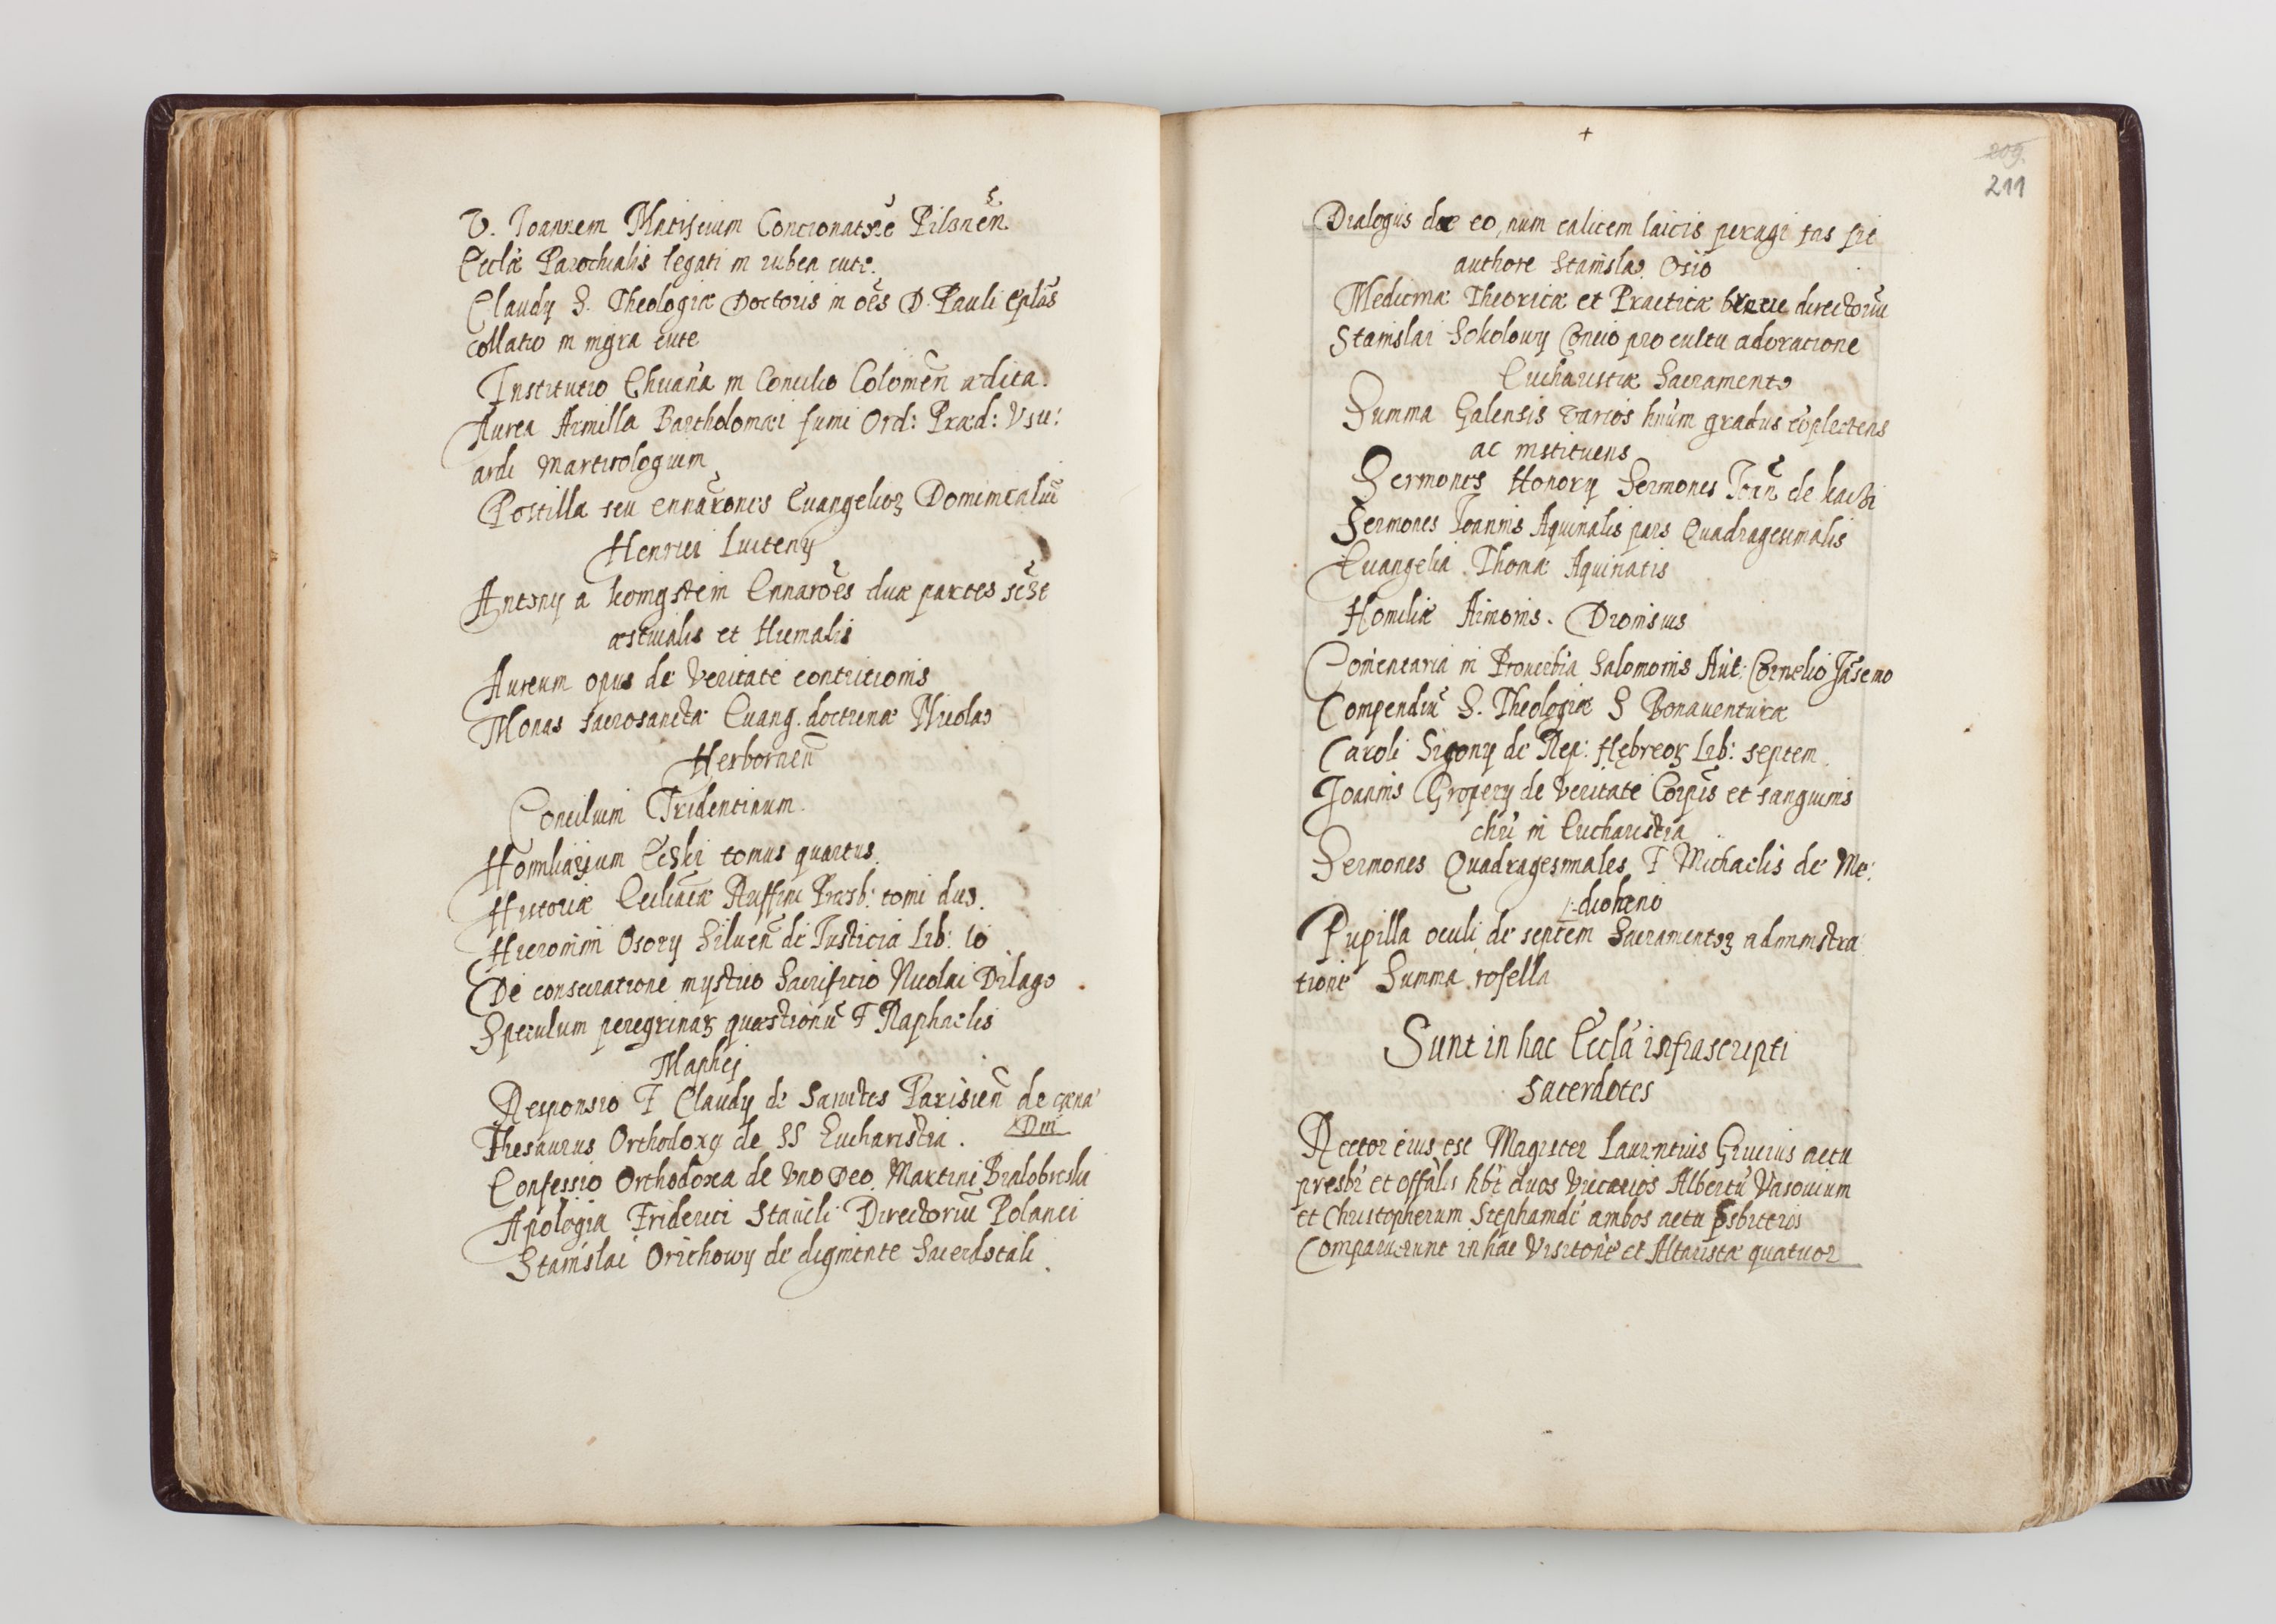 V. Joannem Matiscium Concionatorē Pilsnēn.
Ecclæ Parochialis legati in rubea cute.
Claudy S. Theologiæ Doctoris in oēs D. Pauli Eplās
collatio in nigra cute
Institutio Chrãna in Concilio Colonien ædita.
Aurea Armilla Bartholomæi fumi Ord: Præd: Usu:
ardi Martirologium
Postilla seu ennarōnes Evangelioȝ Dominicaliū
Henrici
Antony a konigstein Ennarōes duæ partes
æstiualis et Hiemalis
Aureum opus de veritate contritionis
Monas sacrosanctæ Evang. doctrinæ Nicolao
Herbornēn
Concilium Tridentinum.
Homiliarium Eckii tomus quartus.
Historiæ Eccliãcæ Ruffini Præsb: tomi duo.
Hieronimi Osory Siluēn de Justicia Lib: 10
De consecratione mystico Sacrificio Nicolai Dilago
Speculum peregrinaȝ quæstionū F Raphaelis
Maphei
Responsio F Claudy de Sanctes Parisien de cæna
Dni
Thesaurus Orthodoxy de SS Eucharistia.
Confessio Orthodoxa de Uno Deo. Martini Bialobreski
Apologia Friderici Staucli Directoriū Polanci
Stanislai Orichowy de dignitate Sacerdotali.
+
209.
211
Dialogus de eo, num calicem laicis peragi fas sit
authore Stanislao Osio
Medicinæ Theoricæ et Practicæ breue directoriū
Stanislai Sokolowy Concio pro cultu adoratione
Eucharistiæ Sacramento
Summa Galensis varios hnūm gradus cōplectens
ac instituens
Sermones Honory Sermones Joañ de
Sermones Joannis Aquinatis pars Quadragesimalis
Evangelia Thomæ Aquinatis
Homiliæ Aimonis. Dionisius
Comentaria in Prouerbia Salomonis Aut: Cornelio Jāsenio
Compendiū S. Theologiæ S Bonaventuræ
Caroli Sigony de Rep: Hebreoȝ Lib: septem.
Joannis Gropery de veritate Corpis et sanguinis
chri in Eucharistia
Sermones Quadragesimales F Michaelis de Me:
diolano
Pupilla oculi de septem Sacramentoȝ administra
tione Summa rosella
Sunt in hac Eccla infrascripti
sacerdotes
Rector eius est Magister Laurentius Grucius actu
presbr et offālis hbt duos Vicarios Albertū Vasouium
et Christopherum Stephanidē ambos actu psbiteros
Comparuerunt in hac Visitōne et Altaristæ quatuor